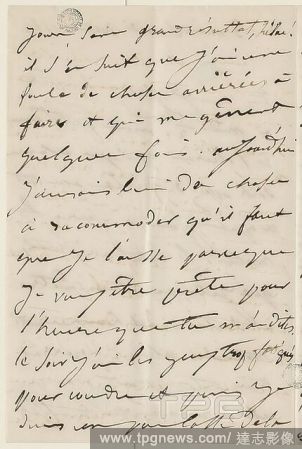 jours sans grand résultat, hélas!
il s'en suit que j'ai une
foule de choses arriérées à
faire et qui me gênent
quelques fois. aujourd'hui
j'aurais bien des choses
à raccommoder qu'il faut
que je laisse parce que
je veux être prête pour
l'heure que tu m'as dite
le soir j'ai les yeux trop fatigués
pour coudre et puis je
suis un peu lasse de la
TPG
www.tpgnews.com/達志影像